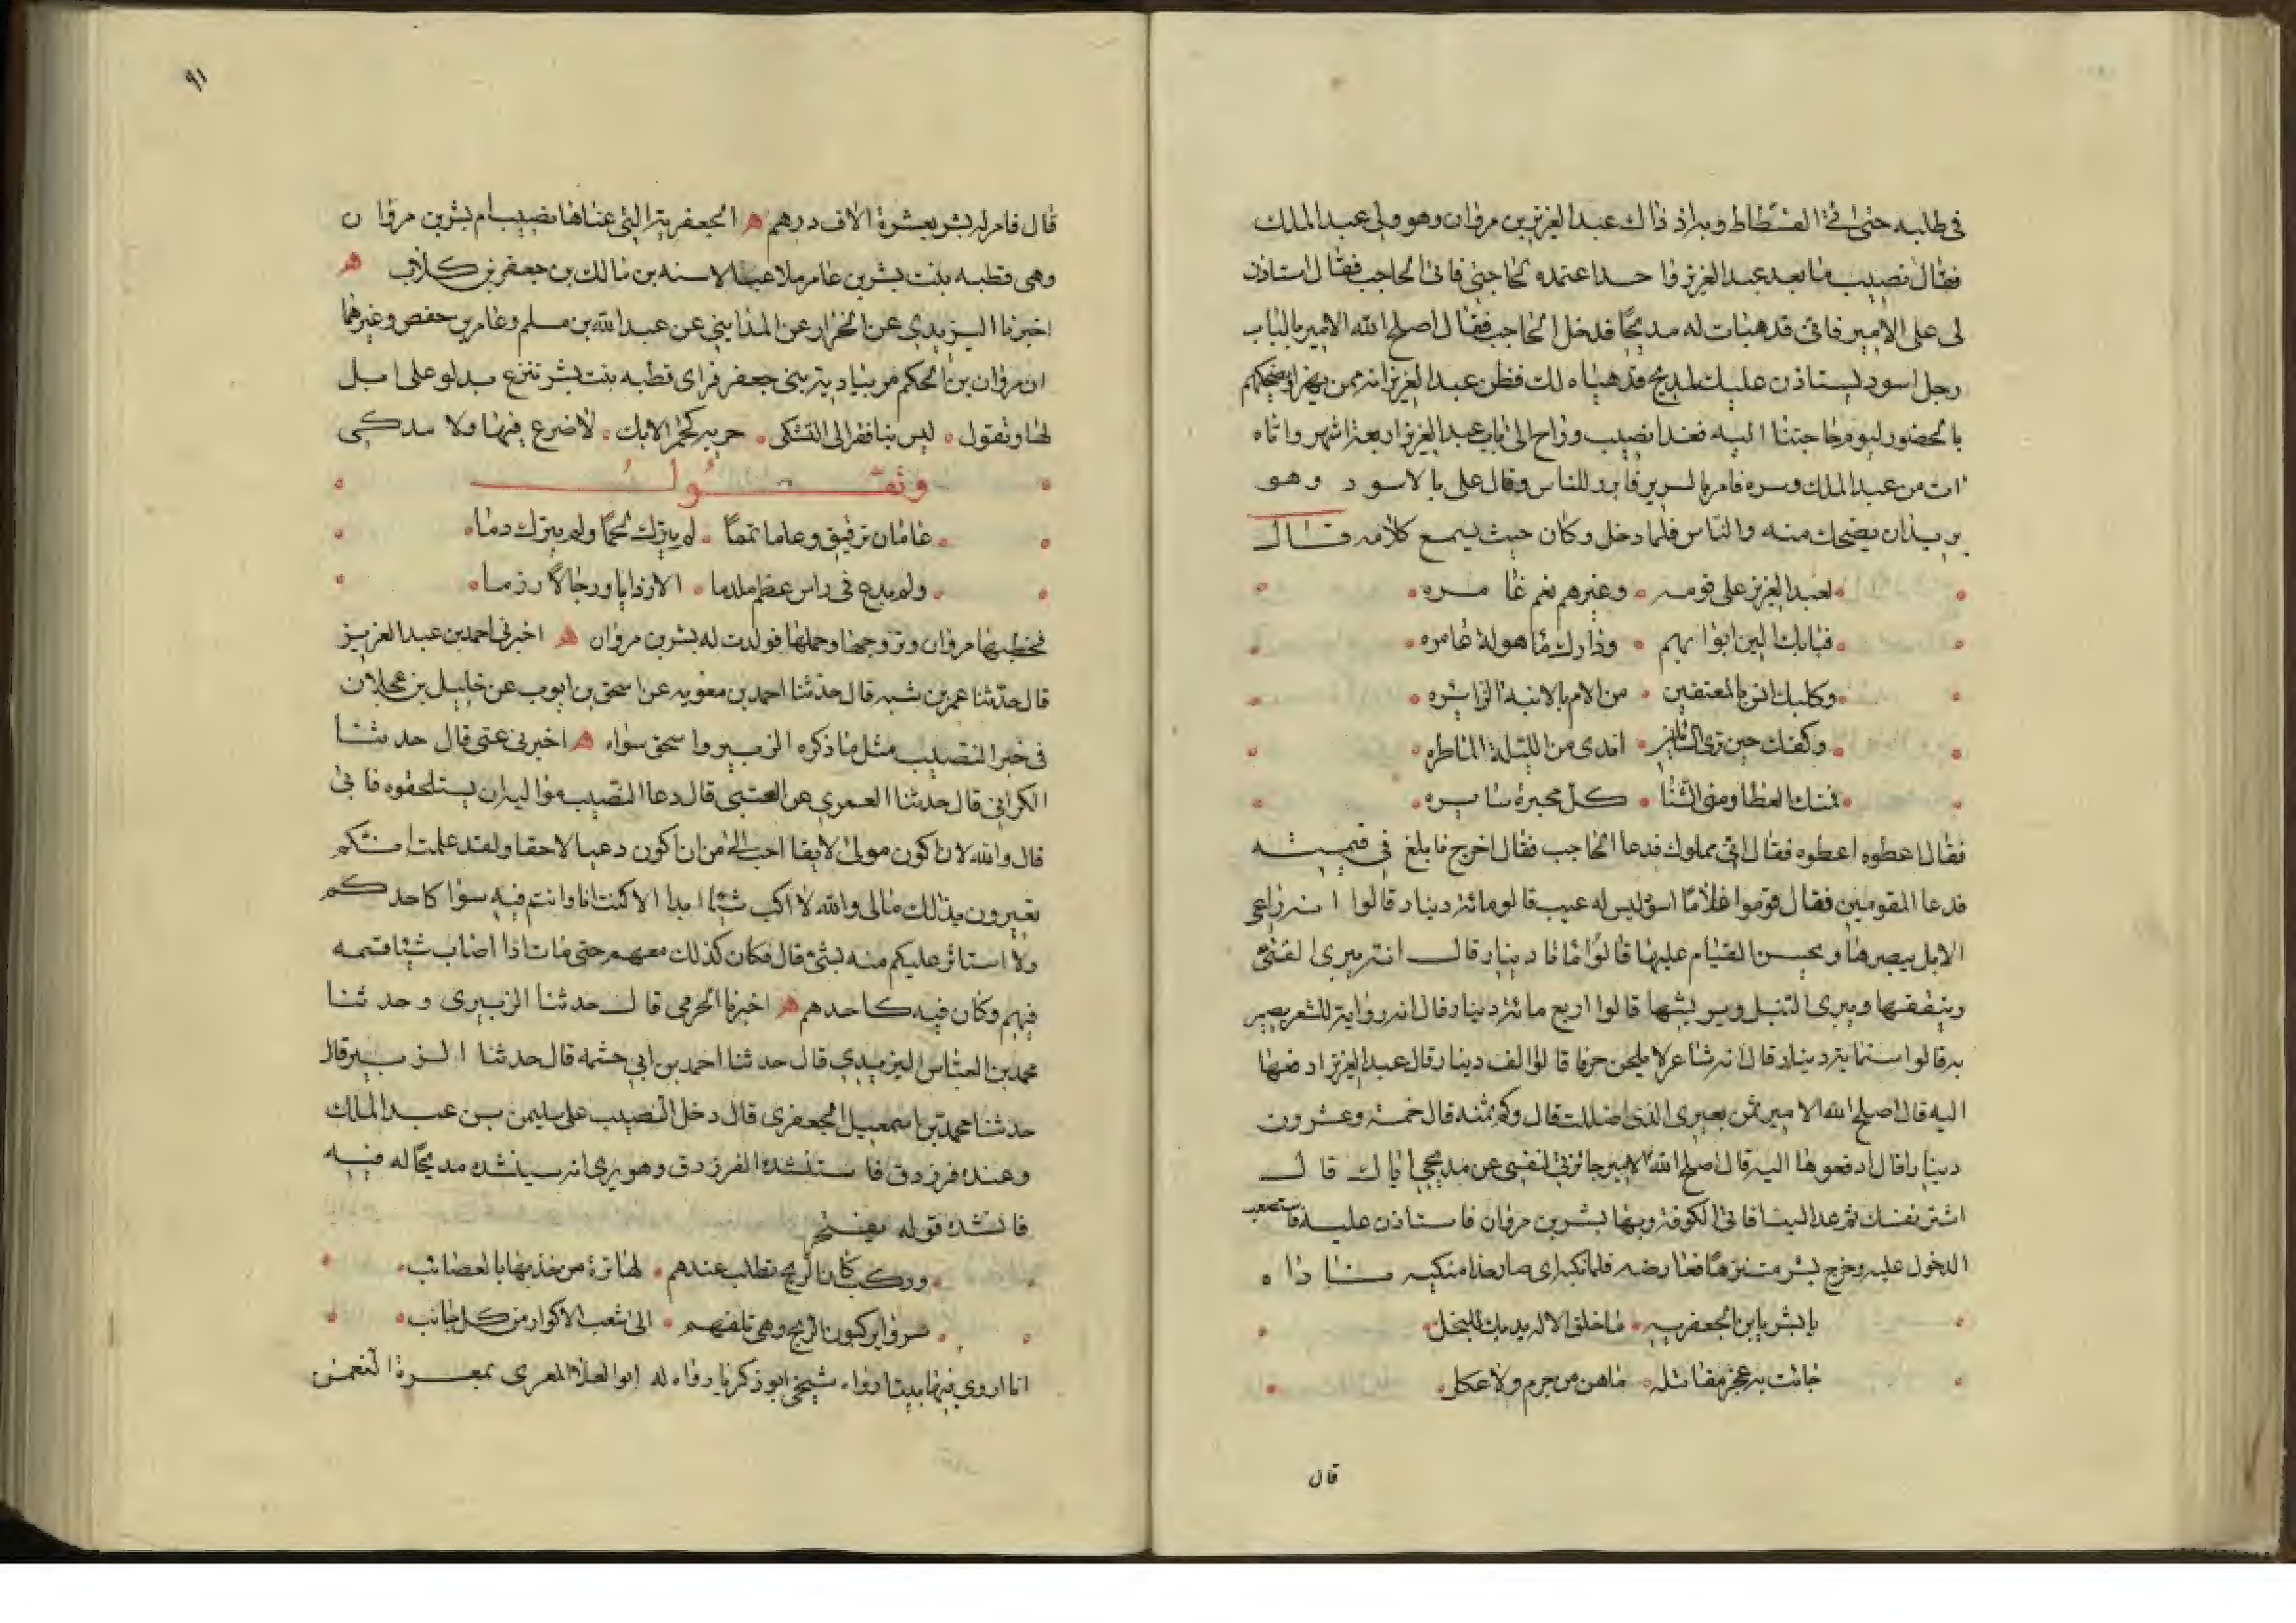 فى طلبه حتى اتى الفسطاط وبه اذ ذاك عبد العزيز بن مروان وهو ولى عبد الملك
فقال نصيب ما بعد عبد العزيز واحد اعتمده لحاجتى فاتى الحاجب فقال استاذن
لى على الامير فانى قد هيات له مديحا فدخل الحاجب فقال اصلح الله الامير بالباب
رجل اسود يستاذن عليك لمديح قد هياه لك فظن عبد العزيز انه ممن يهزا ويضحكهم
بالحضور ليوم حاجتنا اليه فغدا نصيب وراح الى باب عبد العزيز اربعة اشهر واتاه
ات من عبد الملك وسره فامر بالسرير فابرز للناس وقال على بالاسود وهو
يريد ان يضحك منه والناس فلما دخل وكان حيث يسمع كلامه قال
لعبد العزيز على قومه وغيرهم نعم غامره
فبابك الين ابوابهم ودارك ماهولة عامره
وكلبك انس بالمعتفين من الام بالابنة الزائره
وكفك حين ترى السائلين اندى من الليلة الماطره
فمنك العطا ومنى الثنا كل محبرة سايره
فقال اعطوه اعطوه فقال انى مملوك فدعا الحاجب فقال اخرج فابلغ فى قيمته
فدعا المقومين فقال قوموا غلاما اسود ليس له عيب قالو مائة دينار قالوا انه راعى
الابل يبصرها ويحسن القيام عليها قالوا ماتا دينار قال انه يبرى القسى
ويثقفها ويبرى النبل ويريشها قالوا اربع مائة دينار قال انه رواية للشعر بصير
به قالوا ستماية دينار قال انه شاعر لا يلحن حرفا قالوا الف دينار قال عبد العزيز ادفعها
اليه قال اصلح الله الامير ثمن بعيرى الذى اضللت قال وكم ثمنه قال خمسة وعشرون
دينارا قال ادفعوها اليه قال اصلح الله الامير جائزتى لنفسى عن مديحى اياك قال
اشتر نفسك ثم عد الينا فاتى الكوفة وبها بشر بن مروان فاستاذن عليه فاستصعب
الدخول عليه وخرج بشر متنزها فعارضه فلما نكبه اى صار حذا منكبه ناداه
يا بشر يا ابن الجعفريه ما خلق الاله يديك للبخل
جائت به عجز مقابلة ما هن من جرم ولا عكل
قال
٩١
قال فامر له بشر بعشرة الاف درهم هـ الجعفرية التى عناها نصيب ام بشر بن مروان
وهى قطبه بنت بشر بن عامر ملاعب الاسنه بن مالك بن جعفر بن كلاب هـ
اخبرنا اليزيدي عن الخراز عن المدايني عن عبد الله بن مسلم وعامر بن حفص وغيرهما
ان مروان بن الحكم مر ببادية بنى جعفر فراى قطبه بنت بشر تنزع بدلو على ابل
لها وتقول ليس بنا فقر الى التشكى جربة كحمر الابك لا ضرع فيها ولا مذكى
وتقول
عامان ترقيق وعاما تمما لم يترك لحما ولم يترك دما
ولم يدع فى راس عظم ملدما الا رذايا ورجالا رزما
فخطبها مروان وتزوجها وحملها فولدت له بشر بن مروان هـ اخبرنى احمد بن عبد العزيز
قال حدثنا عمر بن شبه قال حدثنا احمد بن معويه عن اسحق بن ايوب عن خليل بن عجلان
فى خبر النصيب مثل ما ذكره الزبير واسحق سواه هـ اخبرنى عمى قال حدثنا
الكرانى قال حدثنا العمري عن العتبى قال دعا النصيب مواليه ان يستلحقوه فابى
قال والله لان اكون مولى لايقا احب الى من ان اكون دعيا لاحقا ولقد علمت انكم
تعيرون بذلك مالى والله لا اكسب شيئا ابدا الا كنت انا وانتم فيه سوا كاحدكم
ولا استاثر عليكم منه بشئ قال فكان كذلك معهم حتى مات اذا اصاب شيئا قسمه
فيهم وكان فيه كاحدهم هـ اخبرنا الحرمى قال حدثنا الزبيرى وحدثنا
محمد بن العباس اليزيدي قال حدثنا احمد بن ابي حثمه قال حدثنا الزبير قال
حدثنا محمد بن اسمعيل الجعفرى قال دخل النصيب على سليمن بن عبد الملك
وعنده فرزدق فاستنشده الفرزدق وهو يرى انه سينشده مديحا له فيه
فانشده قوله يفتخر
وركب كان الريح تطلب عندهم لها ترة من جذبها بالعصائب
سروا يركبون الريح وهى تلفهم الى شعب الاكوار من كل جانب
انا اروى فيها بيتا رواه شيخى ابو زكريا رواه له ابو العلا المعرى بمعرة النعمن